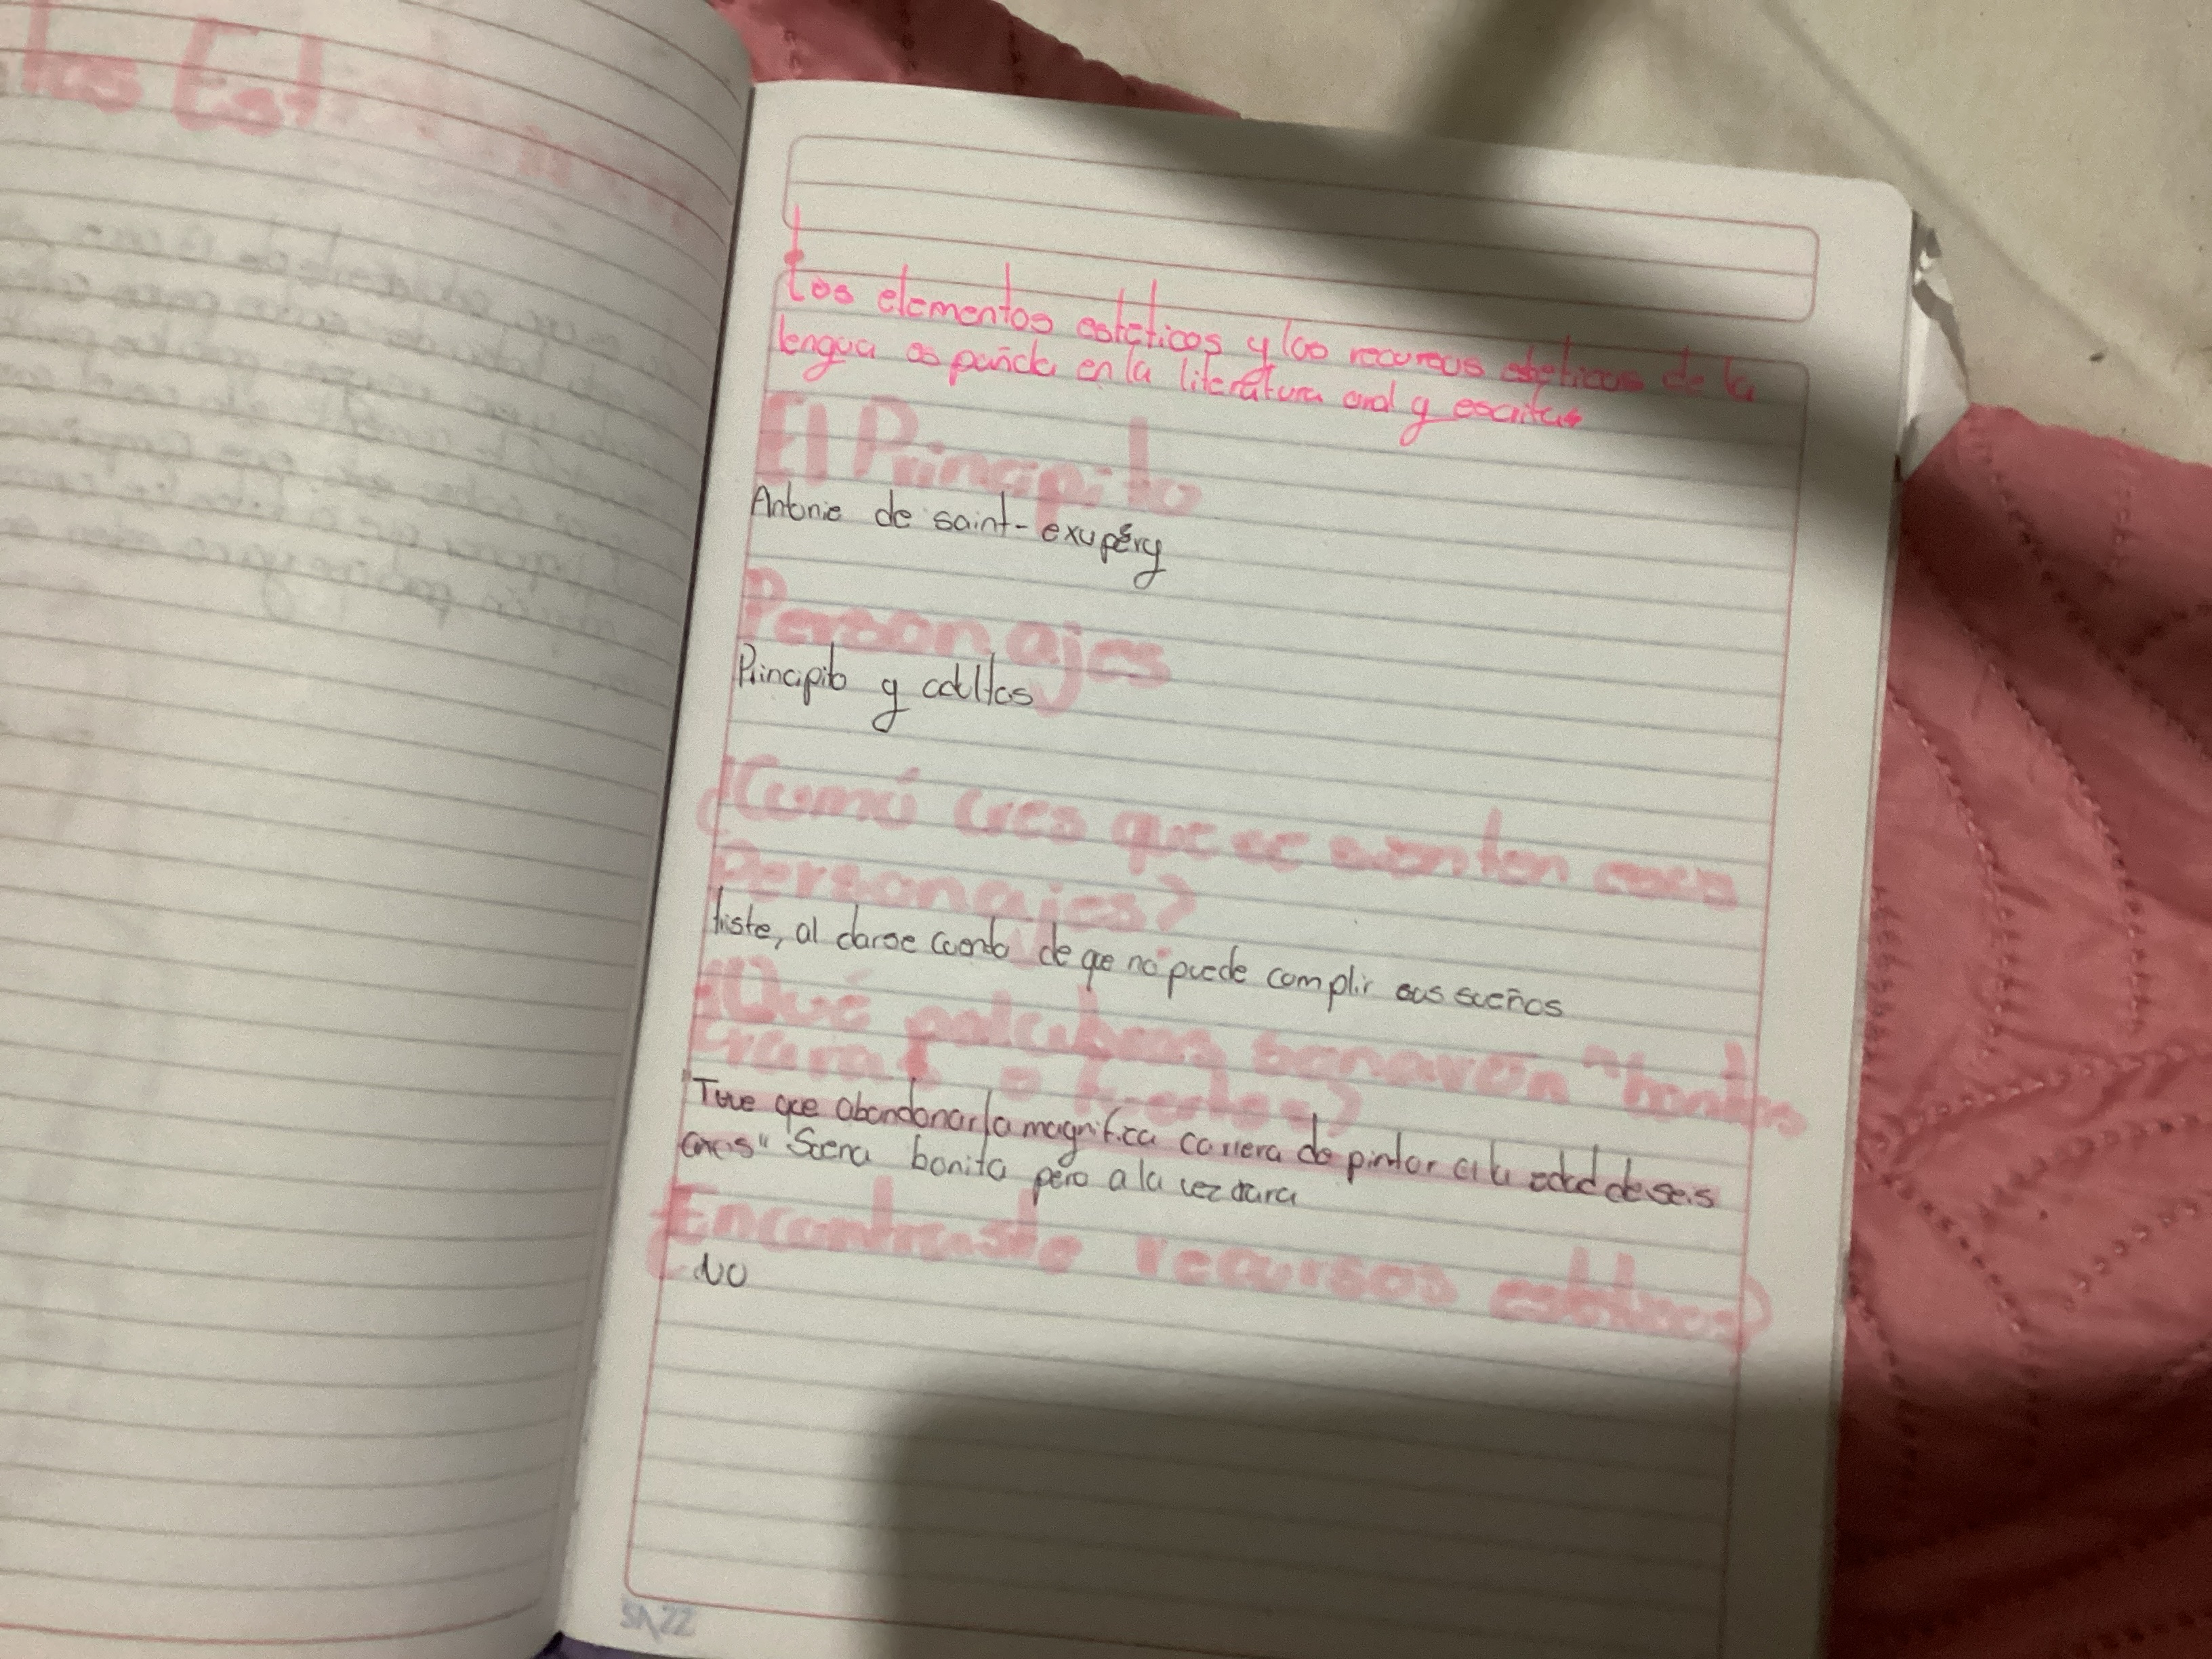 los Est
Los elementos estéticos y los recursos estéticos de la
lengua española en la literatura oral y escrita
El Principito
Antonie de saint-exupéry
Personajes
Principito y adultos
¿Comó crees que se sienten esos
Personajes?
triste, al darse cuenta de que no puede complir sus sueños
¿Qué palabras sonaron "bonitas
raras o fuertes?
"Tuve que abandonar la magnifica carrera de pintor a la edad de seis
años" Suena bonita pero a la vez rara
¿Encontraste recursos estéticos?
NO
SAZZ